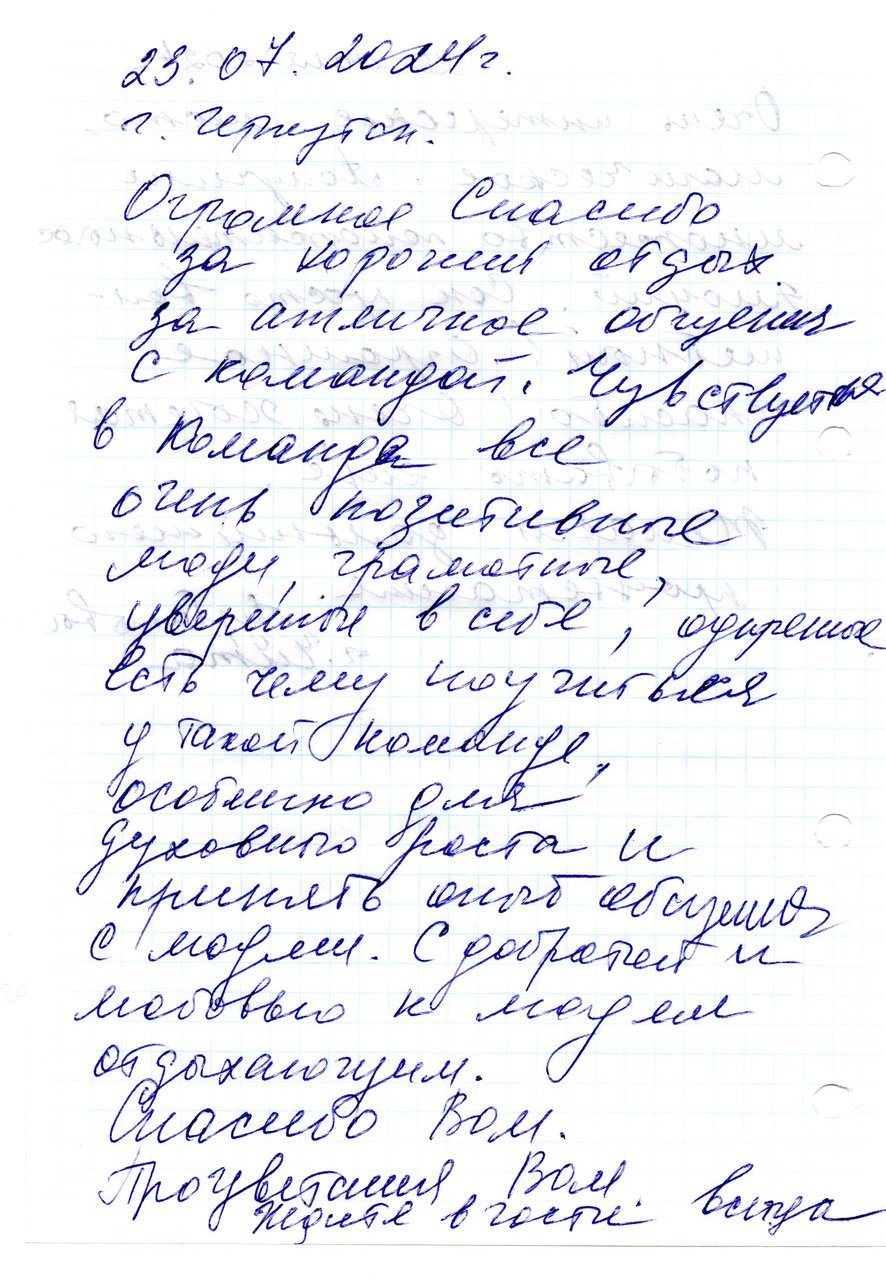 23.07.2024 г.
г. Иркутск.
Огромное Спасибо
за хороший отдых
за атличное общения
с командой. Чувствуется
в команда все
очень позитивные
люди, грамотные,
уверенные в себе, одаренные
есть чему поучиться
у такой команде,
особенно для
духовного роста и
принять опыт общения
с людми. С добротой и
любовью к людям
отдыхающим.
Спасибо Вам.
Процветания Вам
Ждите в гости всегда